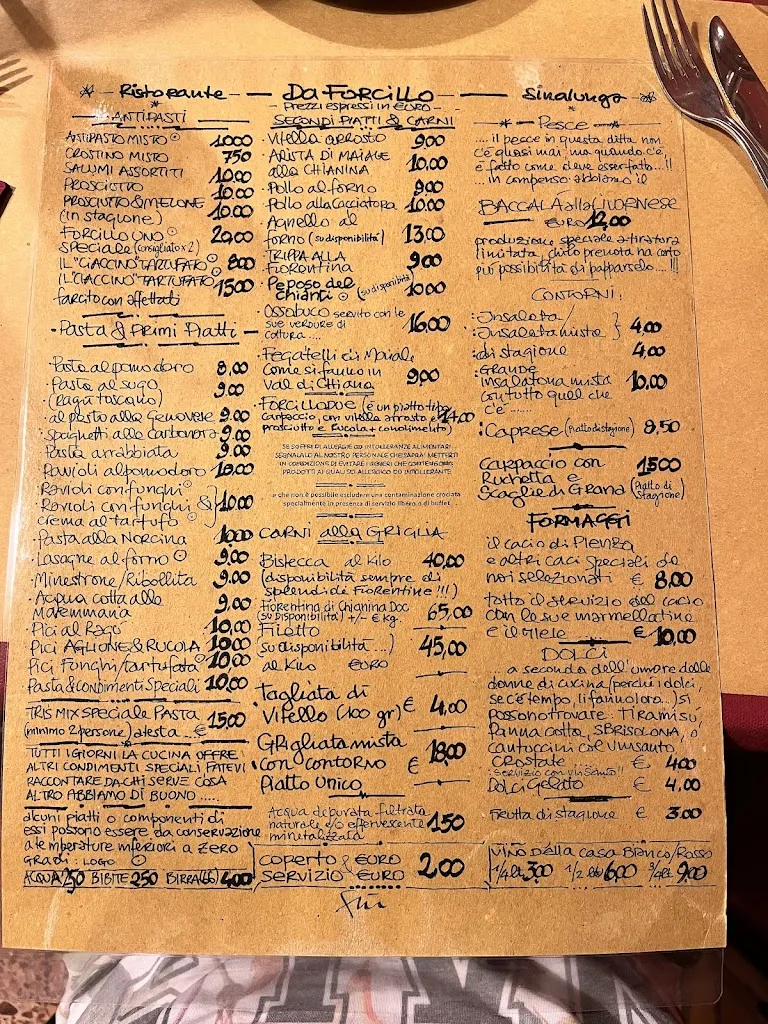 Ristorante — DA FORCILLO — Sinalunga
- Prezzi espressi in €URO -
ANTIPASTI
ANTIPASTO MISTO 10,00
CROSTINO MISTO 7,50
SALUMI ASSORTITI 10,00
PROSCIUTTO 10,00
PROSCIUTTO & MELONE 10,00
(in stagione)
FORCILLO UNO 20,00
SPECIALE (consigliato x 2)
IL "CIACCINO" TARTUFATO 8,00
IL "CIACCINO" TARTUFATO 15,00
farcito con affettati
- Pasta & Primi Piatti -
· Pasta al pomodoro 8,00
· Pasta al sugo 9,00
(Ragù toscano)
· al pesto alla Genovese 9,00
· spaghetti alla carbonara 9,00
· Pasta arrabbiata 9,00
· Ravioli al pomodoro 10,00
· Ravioli con funghi
· Ravioli con funghi & } 10,00
crema al tartufo
· Pasta alla Norcina 10,00
· Lasagne al forno 9,00
· Minestrone/Ribollita 9,00
· Acqua cotta alla 9,00
Maremmana
· Pici al Ragù 10,00
Pici AGLIONE & RUCOLA 10,00
Pici Funghi/tartufata 10,00
Pasta & Condimenti Speciali 10,00
TRIS MIX SPECIALE PASTA 15,00
(minimo 2 persone) a testa ... €
TUTTI I GIORNI LA CUCINA OFFRE
ALTRI CONDIMENTI SPECIALI FATEVI
RACCONTARE DA CHI SERVE COSA
ALTRO ABBIAMO DI BUONO .....
alcuni piatti o componenti di
essi possono essere da conservazione
a temperature inferiori a zero
gradi: LOGO
ACQUA 2,50 BIBITE 2,50 BIRRA (66) 4,00
SECONDI PIATTI & CARNI
· Vitella arrosto 9,00
· ARISTA DI MAIALE
alla CHIANINA 10,00
· Pollo al forno 9,00
· Pollo alla Cacciatora 10,00
· Agnello al
forno (su disponibilità) 13,00
· TRIPPA ALLA 9,00
Fiorentina
· Peposo del (su disponibilità)
Chianti 10,00
· Ossobuco servito con le
sue verdure di 16,00
cottura ....
· Fegatelli di Maiale
Come si fanno in 9,00
Val di Chiana
· FORCILLO DUE (è un piatto tipo 14,00
carpaccio, con vitella arrosto e
prosciutto e Rucola + condimento)
SE SOFFRI DI ALLERGIE O INTOLLERANZE ALIMENTARI
SEGNALALO AL NOSTRO PERSONALE CHE SAPRÀ METTERTI
IN CONDIZIONE DI EVITARE I GENERI CHE CONTENGONO
PRODOTTI AI QUALI SEI ALLERGICO OD INTOLLERANTE
e che non è possibile escludere una contaminazione crociata
specialmente in presenza di servizio libero o di buffet.
CARNI alla GRIGLIA
Bistecca al Kilo 40,00
(disponibilità sempre di
splendide Fiorentine !!!)
Fiorentina di Chianina Doc 65,00
(SU DISPONIBILITÀ) +/- € Kg.
Filetto
(su disponibilità ...) 45,00
al Kilo €URO
· Tagliata di
Vitello (100 gr) € 4,00
GRigliata mista 18,00
con contorno €
Piatto Unico
Acqua depurata filtrata
naturale e/o effervescente 1,50
mineralizzata
coperto & €URO 2,00
SERVIZIO €URO
Fine
Pesce
.... il pesce in questa ditta non
c'è quasi mai, ma quando c'è,
è fatto come deve esser fatto ...!!
... in compenso abbiamo il
BACCALÀ alla LIVORNESE
€URO 12,00
produzione speciale a tiratura
limitata, chi lo prenota ha certo
più possibilità di papparselo ....!!!
CONTORNI:
· Insalata/
Insalata mista } 4,00
· di stagione 4,00
· GRANDE
insalatona mista 10,00
con tutto quel che
c'è ......
· CAPRESE (Piatto di stagione) 8,50
CARPACCIO con 15,00
Ruchetta e
Scaglie di Grana (Piatto di stagione)
FORMAGGI
il cacio di Pienza
e altri caci speciali da
noi selezionati € 8,00
tutto il servizio del cacio
con le sue marmellatine
e il miele € 10,00
DOLCI
... a secondo dell'umore delle
donne di cucina (perchè i dolci,
se c'è tempo, li fanno loro...) si
possono trovare: TIRAMISÙ
Panna cotta, SBRISOLONA, o
cantuccini col vinsanto,
CROSTATE € 4,00
"SERVIZIO CON VIN SANTO"!
Dolci Gelato € 4,00
Frutta di stagione € 3,00
VINO DELLA CASA Bianco/Rosso
1/4 lt 3,00 1/2 lt 6,00 3/4 lt 9,00